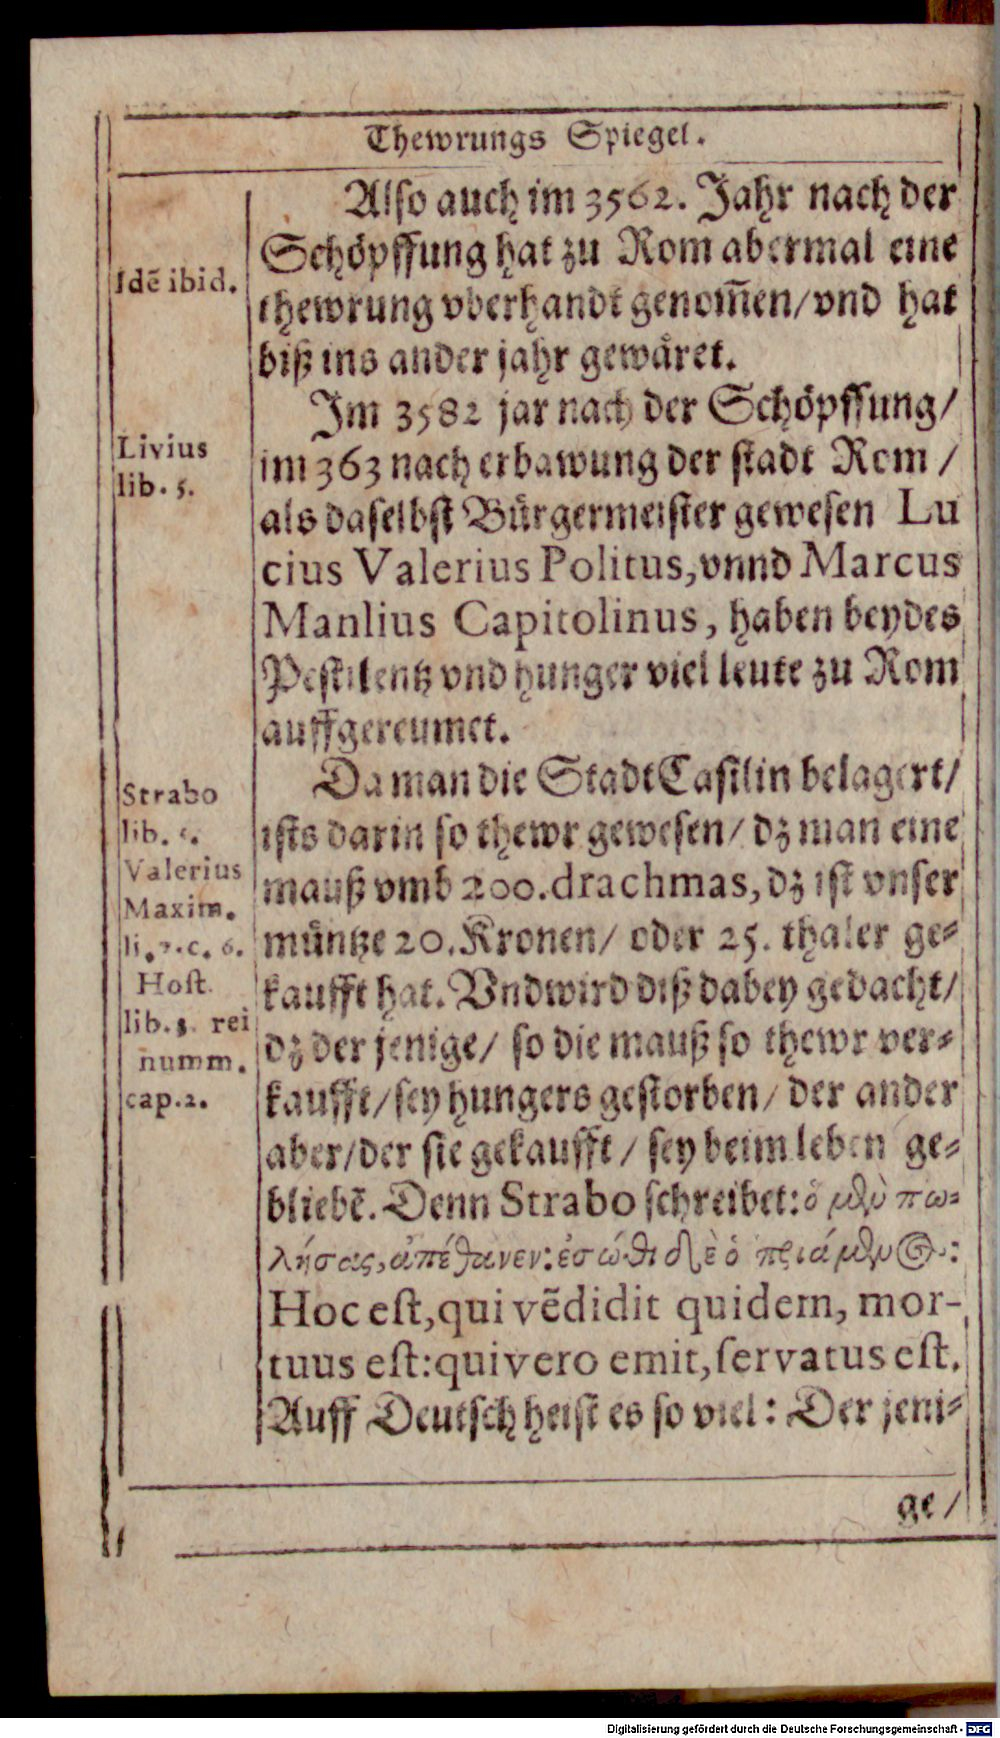 Thewrungs Spiegel.
Also auch im 3562. Jahr nach der
Schöpffung hat zu Rom abermal eine
Idē ibid.
thewrung vberhandt genom̄en/vnd hat
biß ins ander jahr gewäret.
Im 3582 jar nach der Schöpffung/
Livius
im 363 nach erbawung der stadt Rom /
lib. 5.
als daselbst Bürgermeister gewesen Lu
cius Valerius Politus, vnnd Marcus
Manlius Capitolinus, haben beydes
Pestilentz vnd hunger viel leute zu Rom
auffgereumet.
Da man die Stadt Casilin belagert/
Strabo
ists darin so thewr gewesen/ dz man eine
lib. 5.
Valerius
mauß vmb 200. drachmas, dz ist vnser
Maxim.
müntze 20. Kronen/ oder 25. thaler ge-
li. 7. c. 6.
kaufft hat. Vnd wird diß dabey gedacht/
Host.
lib. 5. rei
dz der jenige/ so die mauß so thewr ver-
numm.
kaufft/sey hungers gestorben/ der ander
cap. 2.
aber/der sie gekaufft / sey beim leben ge-
bliebē. Denn Strabo schreibet: ὁ μὲν πω-
λήσας, ἀπέθανεν: ἐσώθι δὲ ὁ πριάμενος:
Hoc est, qui vēdidit quidem, mor-
tuus est: qui vero emit, servatus est.
Auff Deutsch heist es so viel: Der jeni-
ge/
Digitalisierung gefördert durch die Deutsche Forschungsgemeinschaft - DFG